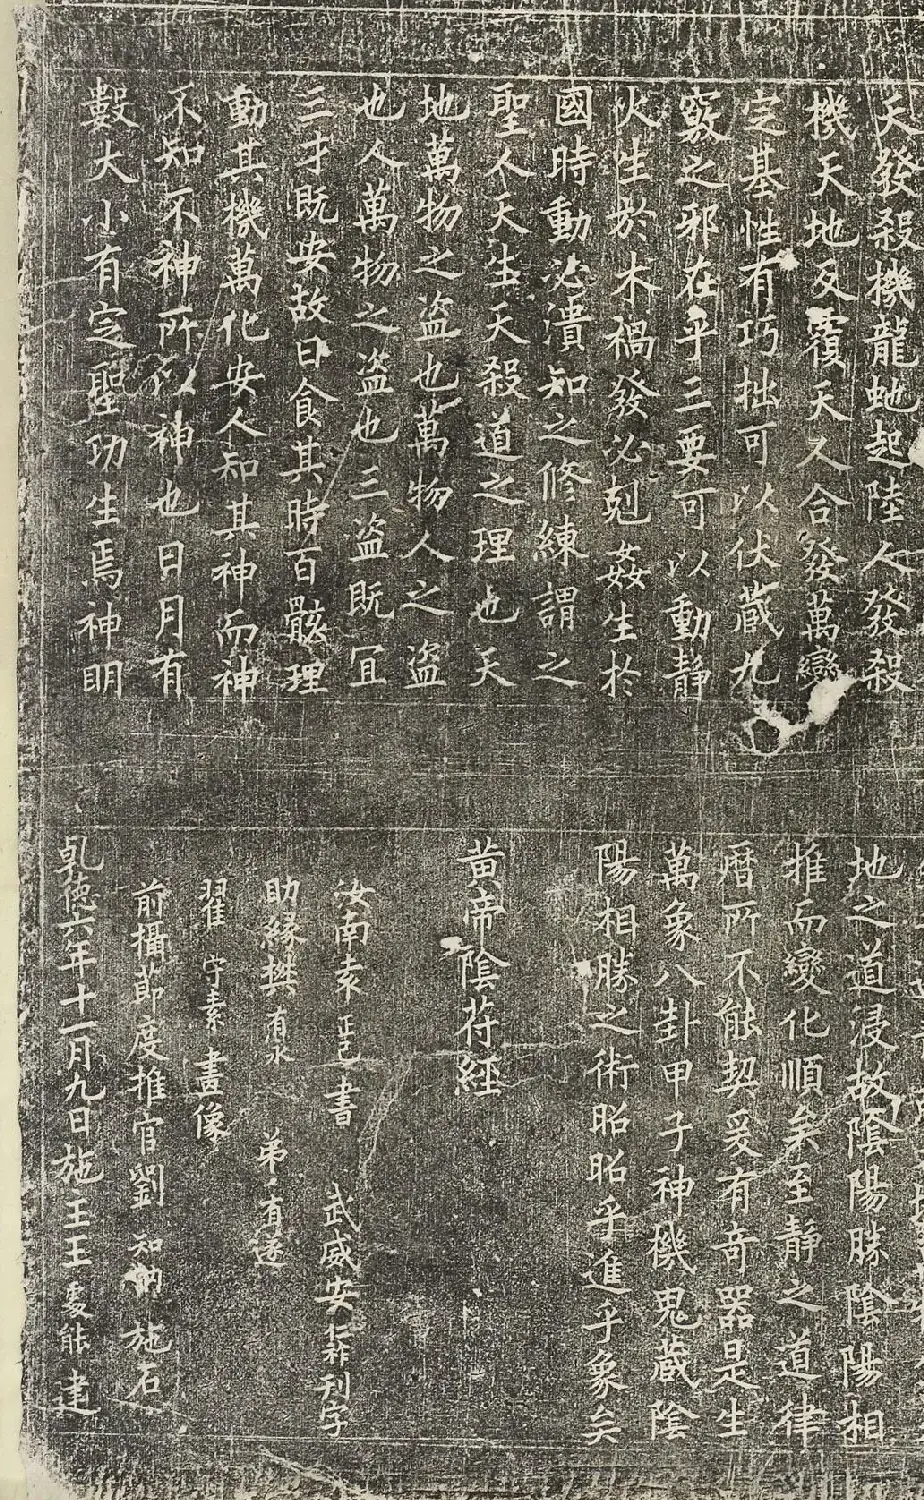 天發殺機龍虵起陸人發殺
機天地反覆天人合發萬變
定基性有巧拙可以伏藏九
竅之邪在乎三要可以動靜
火生於木禍發必剋姦生於
國時動必潰知之修練謂之
聖人天生天殺道之理也天
地萬物之盜也萬物人之盜
也人萬物之盜也三盜既宜
三才既安故曰食其時百骸理
動其機萬化安人知其神而神
不知不神所以神也日月有
數大小有定聖功生焉神明
地之道浸故陰陽勝陰陽相
推而變化順矣至靜之道律
曆所不能契爰有奇器是生
萬象八卦甲子神機鬼藏陰
陽相勝之術昭昭乎進乎象矣
黃帝陰符經
汝南袁正己書 武威安仁祚刊字
助緣樊有永 弟有遂
翟守素畫像
前攝節度推官劉知訥施石
乾德六年十一月九日施主王夐能建